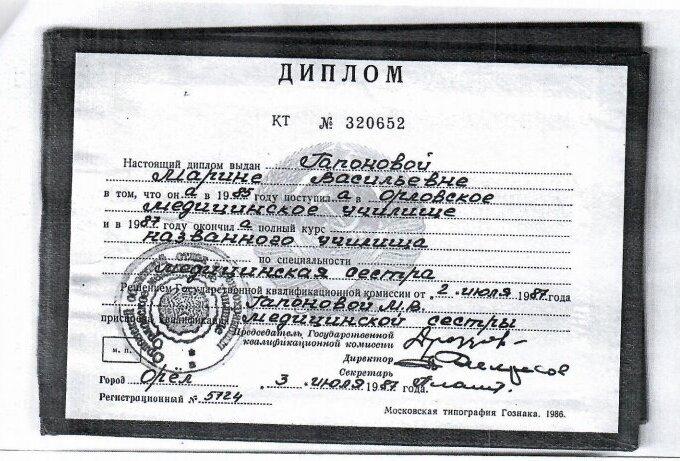 ДИПЛОМ
КТ № 320652
Настоящий диплом выдан Гапоновой
Марине Васильевне
в том, что он а в 1985 году поступил а в Орловское
медицинское училище
и в 1987 году окончил а полный курс
названного училища
по специальности
медицинская сестра
Решением Государственной квалификационной комиссии от „2„ июля 1987 года
Гапоновой М.В.
присвоена квалификация медицинской сестры
Председатель Государственной
квалификационной комиссии
Директор
Секретарь
м. п.
Город Орёл „3„ июля 1987 года.
Регистрационный № 5724
Московская типография Гознака. 1986.